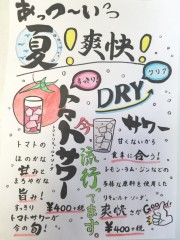 あっつ〜いっ
夏！爽快！
すっきり
クリア
DRY
トマトサワー
今
流行ってます。
サワー
トマトの
ほのかな
甘みと
まろやかな
旨み！
すっきり
トマトサワーが
今の旬！
¥400+税
甘くないから
食事に合う！
レモン・ラム・ジンなどの
多様な原料を使用した
リキュール・ソーダ。
爽快さが
Good!
¥400+税